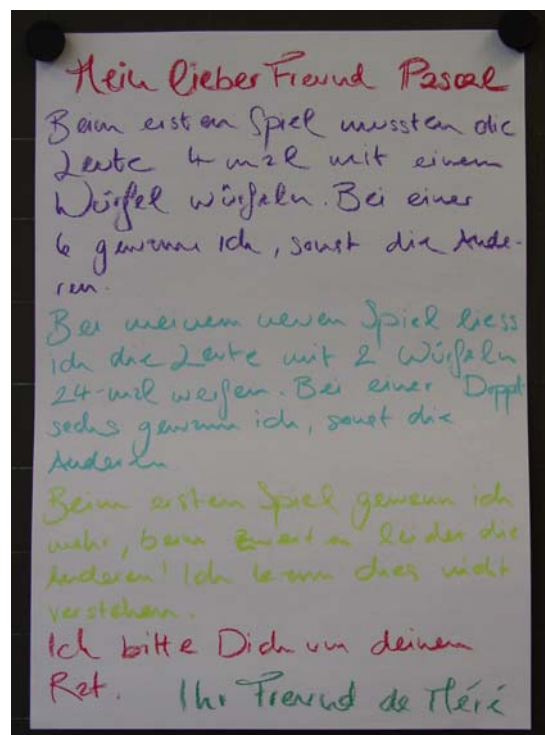 Mein lieber Freund Pascal
Beim ersten Spiel mussten die
Leute 4-mal mit einem
Würfel würfeln. Bei einer
6 gewann ich, sonst die Ande-
ren.
Bei meinem neuen Spiel liess
ich die Leute mit 2 Würfeln
24-mal werfen. Bei einer Doppel
sechs gewann ich, sonst die
Anderen
Beim ersten Spiel gewann ich
mehr, beim zweiten leider die
Anderen! Ich kann dies nicht
verstehen.
Ich bitte Dich um deinen
Rat. Ihr Freund de Méré